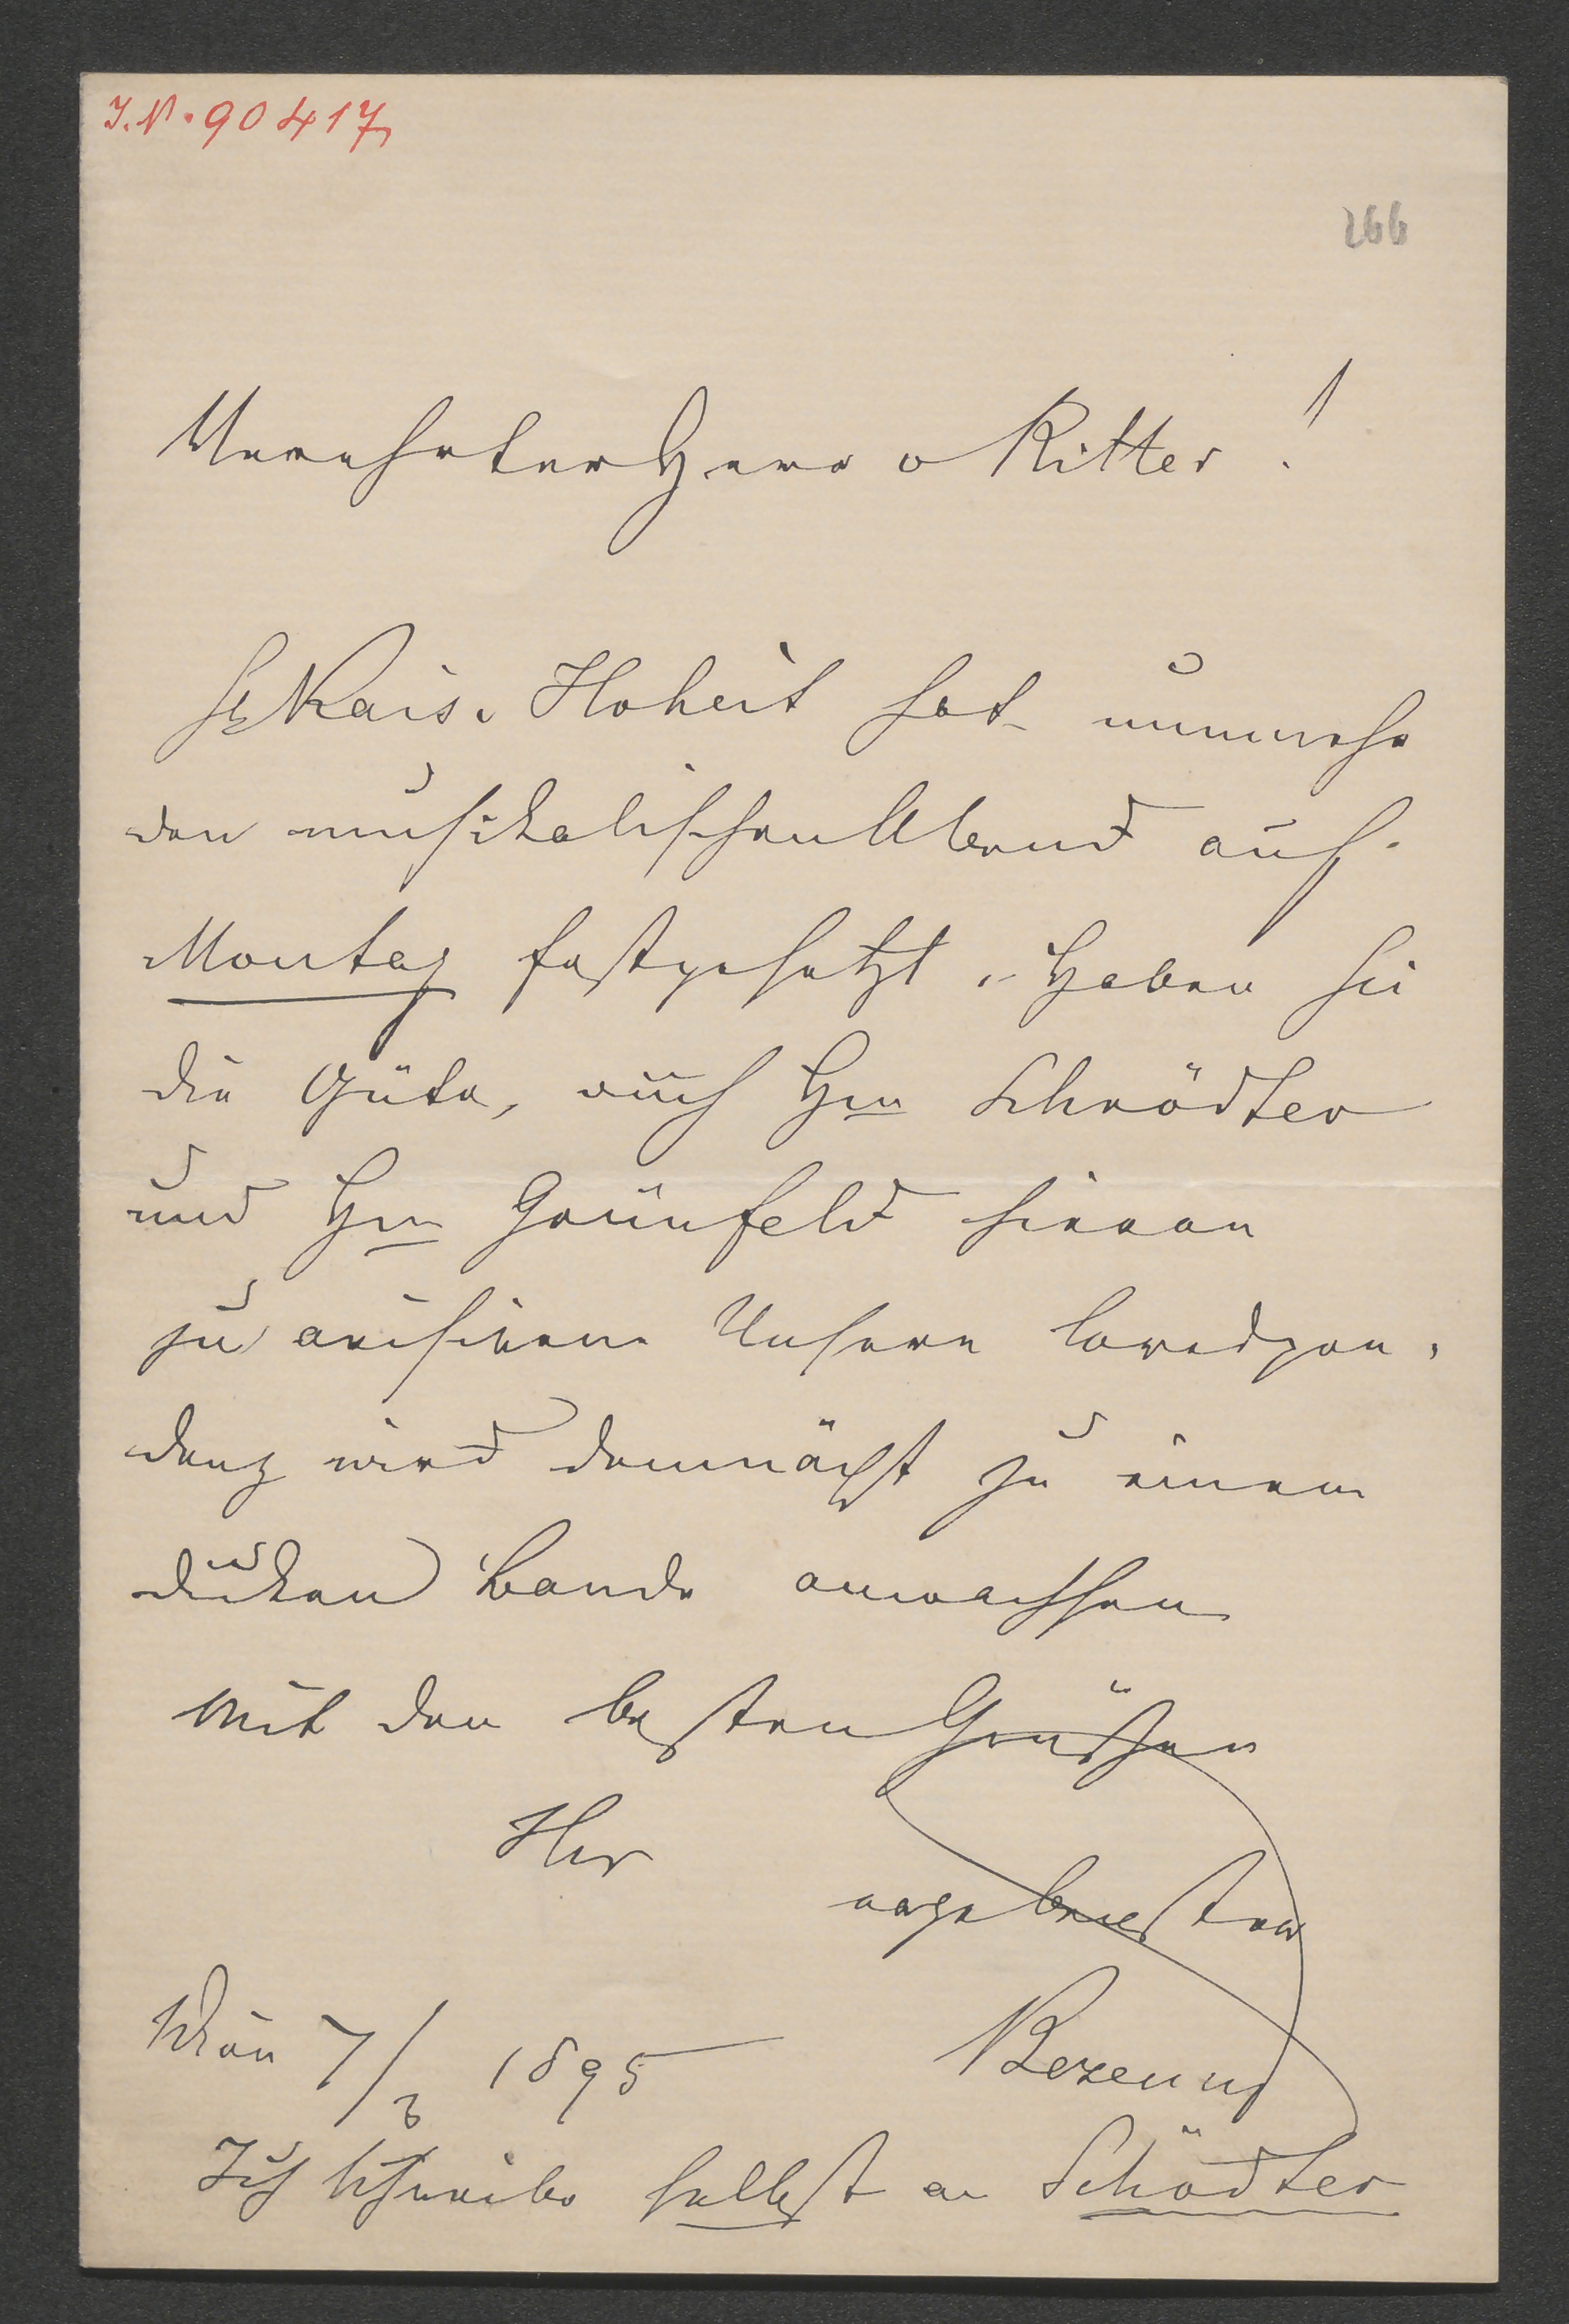 I.N. 90417
266
Verehrter Herr v Ritter!
Se Kais. Hoheit hat nunmehr
den musikalischen Abend auf
Montag festgesetzt. Haben Sie
die Güte, auch Hrn Schrödter
und Hrn Grünfeld hievon
zu avisiren. Unsere Corespon-
denz wird demnächst zu einem
dicken Bande anwachsen
Mit den besten Grüßen
Ihr
ergebenster
Wien 7/3 1895
Bezecny
Ich schreibe selbst an Schödter